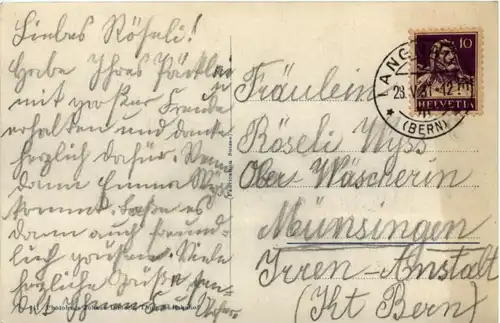 Liebes Röseli!
Habe Ihres Kärtlei
mit großer Freude
erhalten und danke
herzlich dafür. Wenn
dann Emma
kommt. Lasse es
dann auch freund-
lich grüßen. Viele
herzliche Grüße sen-
det Ihnen
10
HELVETIA
LANG
28.V.31.-12
(BERN)
Fräulein
Röseli Wyss
Ober-Wäscherin
Münsingen
Irren-Anstalt
(Kt Bern)